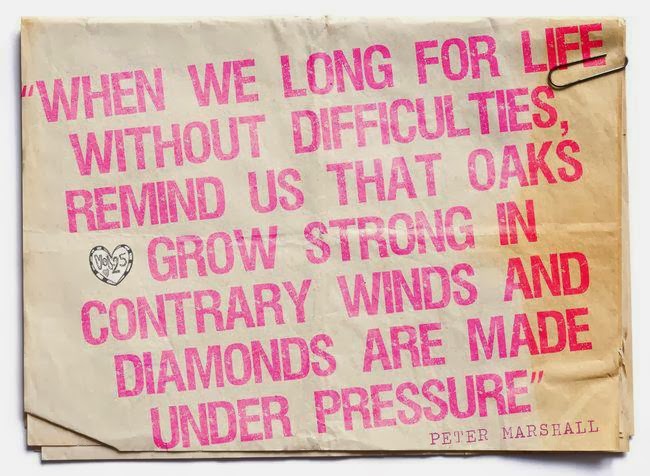 “WHEN WE LONG FOR LIFE
WITHOUT DIFFICULTIES,
REMIND US THAT OAKS
GROW STRONG IN
CONTRARY WINDS AND
DIAMONDS ARE MADE
UNDER PRESSURE”
PETER MARSHALL